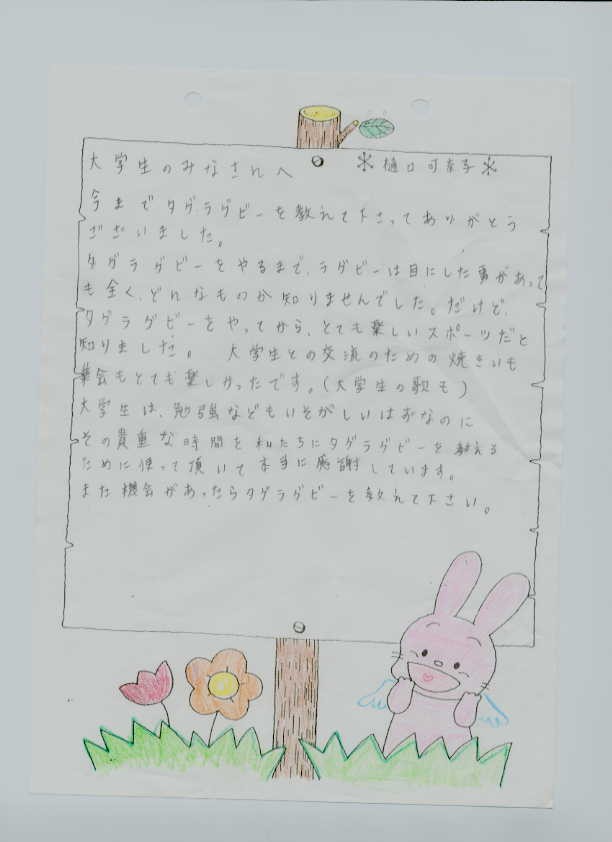 大学生のみなさんへ ＊樋口可奈子＊
今までタグラグビーを教えて下さってありがとう
ございました。
タグラグビーをやるまで、ラグビーは目にした事があって
も全く、どんなものか知りませんでした。だけど、
タグラグビーをやってから、とても楽しいスポーツだと
知りました。 大学生との交流のための焼きいも
集会もとても楽しかったです。(大学生の歌も)
大学生は、勉強などもいそがしいはずなのに
その貴重な時間を私たちにタグラグビーを教える
ために使って頂いて本当に感謝しています。
また機会があったらタグラグビーを教えて下さい。